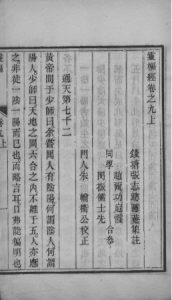 靈樞經卷之九上
錢塘張志聰隱菴集註
同學
趙爾功庭霞
閔振儒士先
合參
門人朱
輪衞公校正
通天第七十二
黃帝問于少師曰余嘗聞人有陰陽何謂陰人何謂
陽人少師曰天地之間六合之內不離于五人亦應
之非徒一陰一陽而已也而略言耳口弗能徧明也